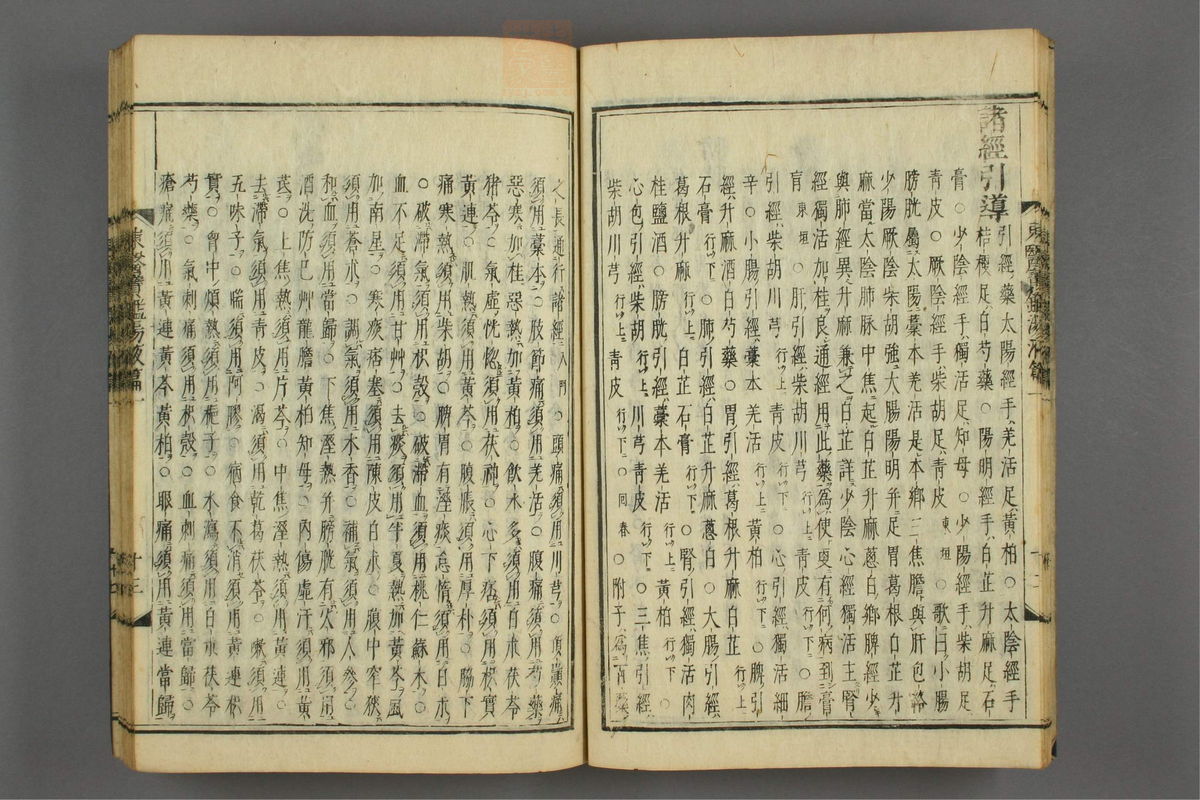 諸經引導
引經藥太陽經手羌活足黃柏○太陰經手
桔梗足白芍藥○陽明經手白芷升麻足石
膏○少陰經手獨活足知母○少陽經手柴胡足
青皮○厥陰經手柴胡足青皮東垣○歌曰小腸
膀胱屬太陽藁本羌活是本鄕三焦膽與肝包絡
少陽厥陰柴胡強大腸陽明幷足胃葛根白芷升
麻當太陰肺脉中焦起白芷升麻蔥白鄕脾經少
與肺經異升麻兼之白芷詳少陰心經獨活主腎
經獨活加桂良通經用此藥爲使更有何病到膏
肓東垣○肝引經柴胡川芎行以上靑皮行以下○膽
引經柴胡川芎行以上靑皮行以下○心引經獨活細
辛○小腸引經藁本羌活行以上黃柏行以下○脾引
經升麻酒白芍藥○胃引經葛根升麻白芷行以上
石膏行以下○肺引經白芷升麻蔥白○大腸引經
葛根升麻行以上白芷石膏行以下○腎引經獨活肉
桂鹽酒○膀胱引經藁本羌活行以上黃柏行以下○
心包引經柴胡行以上川芎靑皮行以下○三焦引經
柴胡川芎行以上靑皮行以下○回春○附子爲百藥
之長通行諸經入門○頭痛須用川芎○頂巓痛
須用藁本○肢節痛須用羌活○腹痛須用芍藥
惡寒加桂惡熱加黃柏○飮水多須用白朮茯苓
猪苓○氣虛恍惚須用茯神○心下痞須用枳實
黃連○肌熱須用黃芩○腹脹須用厚朴○脇下
痛寒熱須用柴胡○脾胃有濕痰怠惰須用白朮
○破滯氣須用枳殼○破滯血須用桃仁蘇木○
血不足須用甘艸○去痰須用半夏熱加黃芩風
加南星○寒痰痞塞須用陳皮白朮○腹中窄狹
須用蒼朮○調氣須用木香○補氣須用人參○
和血須用當歸○下焦濕熱幷膀胱有火邪須用
酒洗防巳艸龍膽黃柏知母○內傷虛汗須用黃
芪○上焦熱須用片芩○中焦濕熱須用黃連○
去滯氣須用靑皮○渴須用乾葛茯苓○嗽須用
五味子○喘須用阿膠○宿食不消須用黃連枳
實○胷中煩熱須用梔子○水瀉須用白朮茯苓
芍藥○氣刺痛須用枳殼○血刺痛須用當歸○
瘡痛須用黃連黃芩黃柏○眼痛須用黃連當歸
東醫寶鑑湯液篇一
十二
東醫寶鑑湯液篇一
十三